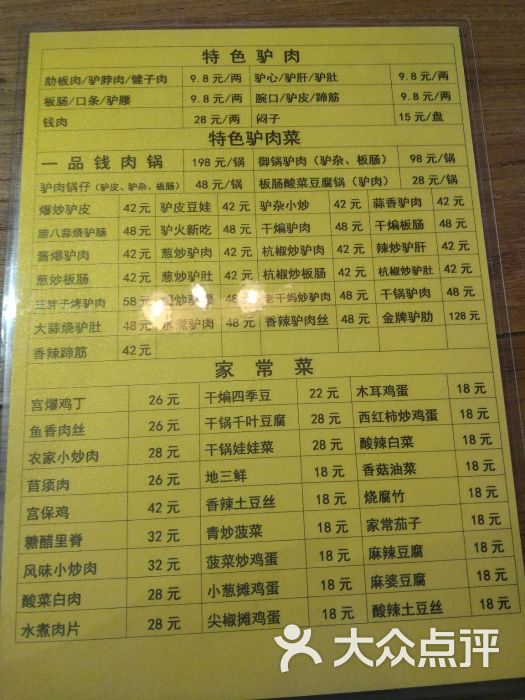 特色驴肉
肋板肉/驴脖肉/健子肉 9.8元/两 驴心/驴肝/驴肚 9.8元/两
板肠/口条/驴腰 9.8元/两 腕口/驴皮/蹄筋 9.8元/两
钱肉 28元/两 闷子 15元/盘
特色驴肉菜
一品钱肉锅 198元/锅 御锅驴肉(驴杂、板肠) 98元/锅
驴肉锅仔(驴皮、驴杂、板肠) 48元/锅 板肠酸菜豆腐锅(驴肉) 28元/锅
爆炒驴皮 42元 驴皮豆娃 42元 驴杂小炒 42元 蒜香驴肉 42元
腊八蒜烧驴肠 48元 驴火新吃 48元 干煸驴肉 48元 干煸板肠 48元
酱爆驴肉 42元 葱炒驴肉 42元 杭椒炒驴肉 42元 辣炒驴肝 42元
葱炒板肠 42元 葱炒驴肚 42元 杭椒炒板肠 42元 杭椒炒驴肚 42元
三胖子烤驴肉 58元 炒驴 48 老干妈炒驴肉 48元 干锅驴肉 48元
大蒜烧驴肚 48元 水煮驴肉 48元 香辣驴肉丝 48元 金牌驴肋 128元
香辣蹄筋 42元
家常菜
宫爆鸡丁 26元 干煸四季豆 22元 木耳鸡蛋 18元
鱼香肉丝 26元 干锅千叶豆腐 28元 西红柿炒鸡蛋 18元
农家小炒肉 28元 干锅娃娃菜 28元 酸辣白菜 18元
苜须肉 26元 地三鲜 18元 香菇油菜 18元
宫保鸡 42元 香辣土豆丝 18元 烧腐竹 18元
糖醋里脊 32元 青炒菠菜 18元 家常茄子 18元
风味小炒肉 32元 菠菜炒鸡蛋 18元 麻辣豆腐 18元
酸菜白肉 28元 小葱摊鸡蛋 18元 麻婆豆腐 18元
水煮肉片 28元 尖椒摊鸡蛋 18元 酸辣土豆丝 18元
大众点评